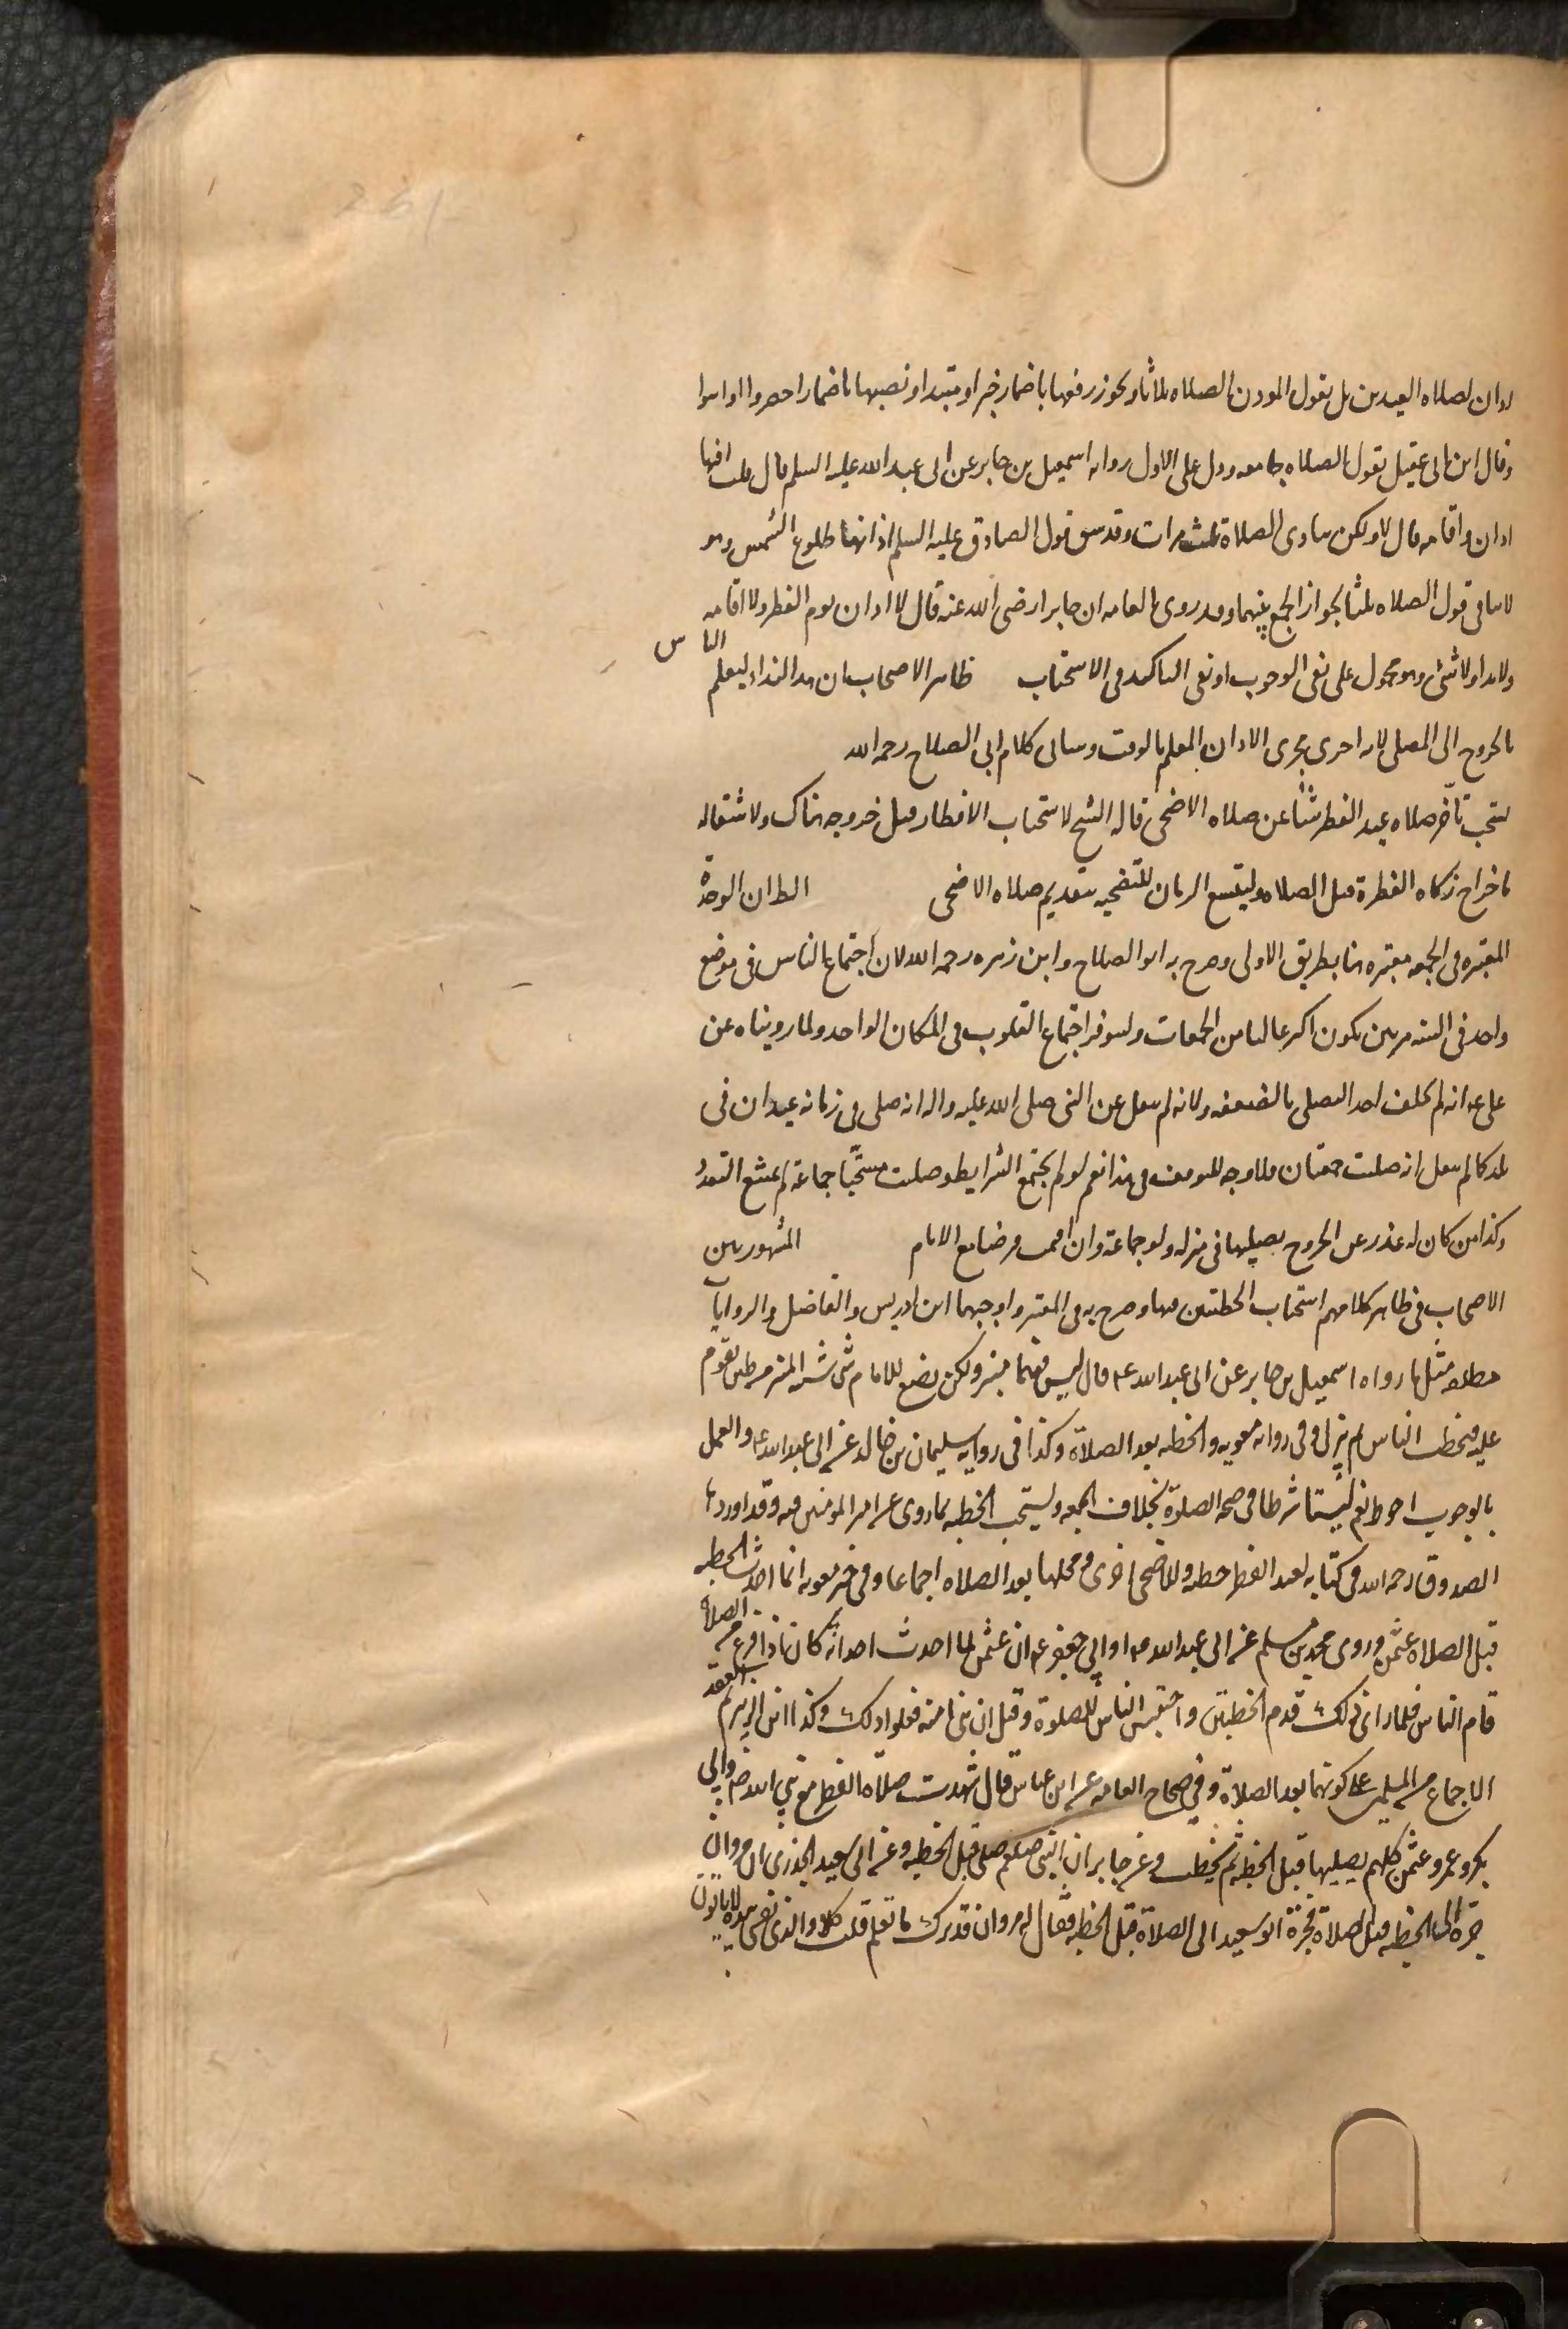 اذان لصلاه العيدين بل يقول الموذن الصلاه ثلاثا ويجوز رفعها باضمار خبر او مبتدا ونصبها باضمار احضروا او ايتوا
وقال ابن ابي عقيل يقول الصلاه جامعه ودل على الاول روايه اسمعيل بن جابر عن ابي عبد الله عليه السلم قال قلت افيها
اذان واقامه قال لا ولكن ينادى الصلاة ثلث مرات وقد سبق قول الصادق عليه السلم اذانهما طلوع الشمس وهو
لا ينافي قول الصلاه ثلثا لجواز الجمع بينهما وقد روى العامه ان جابرا رضى الله عنه قال لا اذان يوم الفطر ولا اقامه
ولا نداء ولا شئ وهو محمول على نفى الوجوب او نفى التاكيد فى الاستحباب ظاهر الاصحاب ان هذا النداء ليعلم الناس
بالخروج الى المصلى لانه اجرى مجرى الاذان المعلم بالوقت وسياتى كلام ابى الصلاح رحمه الله
يستحب تأخر صلاه عيد الفطر شيئا عن صلاه الاضحى قاله الشيخ لاستحباب الافطار قبل خروجه هناك ولاشتغاله
باخراج زكاه الفطرة قبل الصلاه وليتسع الزمان للتضحيه بتقديم صلاه الاضحى الظ ان الوحدة
المعتبره فى الجمعه معتبره هنا بطريق الاولى وصرح به ابو الصلاح وابن زهره رحمه الله لان اجتماع الناس فى موضع
واحد فى السنه مرتين يكون اكثر غالبا من الجمعات وليوفر اجتماع القلوب فى المكان الواحد ولما رويناه عن
على ع انه لم يخلف احدا يصلى بالضعفه ولانه لم ينقل عن النبى صلى الله عليه واله انه صلى فى زمانه عيدان فى
بلد كما لم ينقل انه صليت جمعتان فلا وجه للتوقف فى هذا نعم لو لم يجتمع الشرايط وصليت مستحبا جماعة لم يمتنع التعدد
وكذا من كان له عذر عن الخروج يصليها فى منزله ولو جماعة وان اقيمت مرضا مع الامام المشهور بين
الاصحاب فى ظاهر كلامهم استحباب الخطبتين فيها وصرح به فى المعتبر واوجبهما ابن ادريس والفاضل والروايات
مطلقه مثل ما رواه اسمعيل بن جابر عن ابى عبد الله ع قال ليس فيهما منبر ولكن يصنع للامام شئ شبه المنبر من طين يقوم
عليه فيخطب الناس ثم ينزل وفى روايه معويه والخطبه بعد الصلاة وكذا فى روايه سليمان بن خالد عن ابى عبد الله ع والعمل
بالوجوب احوط نعم ليستا شرطا فى صحه الصلوة بخلاف الجمعه ويستحب الخطبه بما روى عن امير المومنين فيه وقد اوردها
الصدوق رحمه الله فى كتابه لعيد الفطر خطبه وللاضحى اخرى ومحلها بعد الصلاه اجماعا وفى خبر معويه انما احدث الخطبه
قبل الصلاه عثمن وروى محمد بن مسلم عن ابى عبد الله ع او ابى جعفر ع ان عثمن لما احدث احداثه كان اذا فرغ من الصلاة
قام الناس فلما راى ذلك قدم الخطبتين واحتبس الناس للصلوة وقيل ان بنى امية فعلوا ذلك وكذا ابن الزبير ثم انعقد
الاجماع من المسلمين على كونهما بعد الصلاة وفى صحاح العامه عن ابن عباس قال شهدت صلاة الفطر مع نبي الله ص وابي
بكر وعمر وعثمن كلهم يصليها قبل الخطبه ثم يخطب وعن جابر ان النبى صلعم صلى قبل الخطبه وعن ابى سعيد الخدرى ان مروان
جره الى الخطبه قبل الصلاة فجره ابو سعيد الى الصلاة قبل الخطبه فقال له مروان قد ترك ما تعلم قلت كلا والذى نفسى بيده لا تاتون